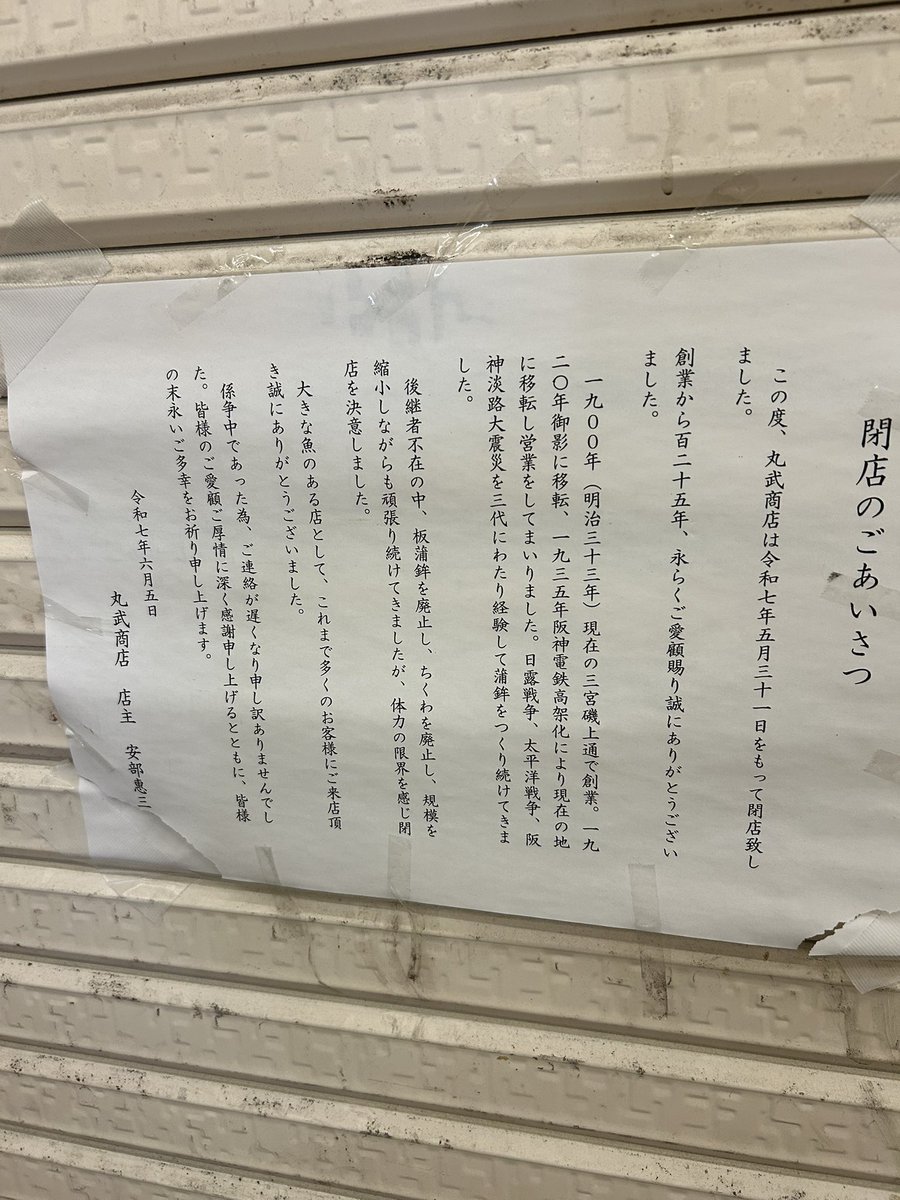 閉店のごあいさつ
この度、丸武商店は令和七年五月三十一日をもって閉店致し
ました。
創業から百二十五年、永らくご愛顧賜り誠にありがとうござい
ました。
一九〇〇年（明治三十三年）現在の三宮磯上通で創業。一九
二〇年御影に移転、一九三五年阪神電鉄高架化により現在の地
に移転し営業をしてまいりました。日露戦争、太平洋戦争、阪
神淡路大震災を三代にわたり経験して蒲鉾をつくり続けてきま
した。
後継者不在の中、板蒲鉾を廃止し、ちくわを廃止し、規模を
縮小しながらも頑張り続けてきましたが、体力の限界を感じ閉
店を決意しました。
大きな魚のある店として、これまで多くのお客様にご来店頂
き誠にありがとうございました。
係争中であった為、ご連絡が遅くなり申し訳ありませんでし
た。皆様のご愛顧ご厚情に深く感謝申し上げるとともに、皆様
の末永いご多幸をお祈り申し上げます。
令和七年六月五日
丸武商店　店主　安部惠三